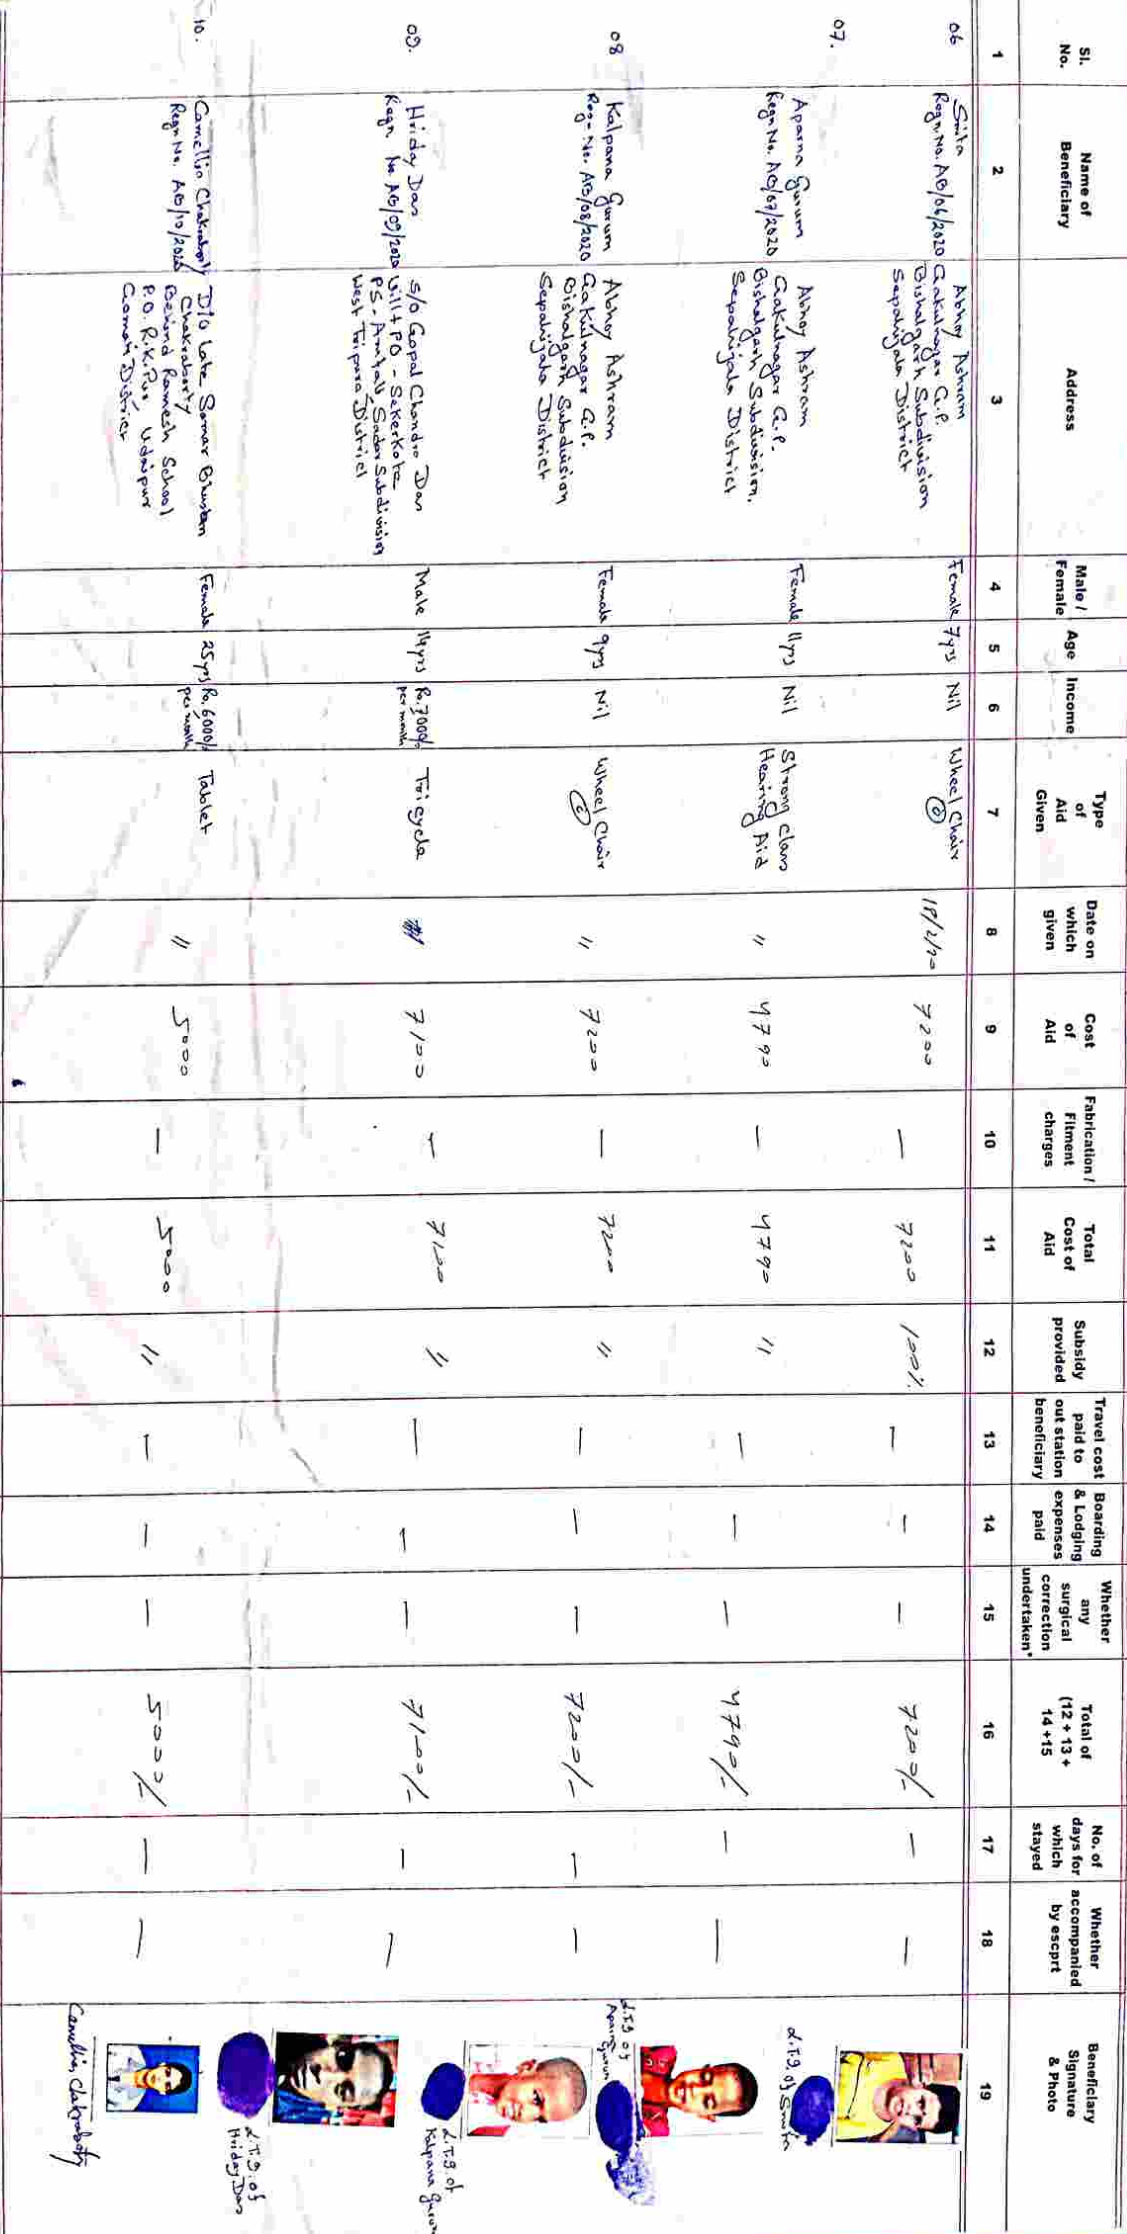 Sl. No.
Name of Beneficiary
Address
Male / Female
Age
Income
Type of Aid Given
Date on which given
Cost of Aid
Fabrication / Fitment charges
Total Cost of Aid
Subsidy provided
Travel cost paid to out station beneficiary
Boarding & Lodging expenses paid
Whether any surgical correction undertaken*
Total of (12 + 13 + 14 +15
No. of days for which stayed
Whether accompanied by escprt
Beneficiary Signature & Photo
1 2 3 4 5 6 7 8 9 10 11 12 13 14 15 16 17 18 19
06
Smita
Regn. No. AB/06/2020
Abhoy Ashram
Gakulnagar G.P.
Bishalgarh Subdivision
Sepahijala District
Female 7yrs Nil
Wheel Chair
©
18/2/20
7200 — 7200 100% — — — 7200/- — —
L.T.I. of Smita
07.
Aparna Gurum
Regn No. AB/07/2020
Abhoy Ashram
Gakulnagar G.P.
Bishalgarh Subdivision,
Sepahijala District
Female 11yrs Nil
Strong Class
Hearing Aid
" 4790 — 4790 " — — — 4790/- — —
L.T.I of
Aparna
Gurum
08
Kalpana Gurum
Reg- No. AB/08/2020
Abhoy Ashram
Gakulnagar G.P.
Bishalgarh Subdivision
Sepahijala District
Female 9yrs Nil
Wheel Chair
©
" 7200 — 7200 " — — — 7200/- — —
L.T.I. of
Kalpana Gurum
09.
Hriday Das
Regn No AB/09/2020
S/O Gopal Chandra Das
Vill + PO - Sekerkote
PS - Amtali, Sadar Subdivision
West Tripura District
Male 14yrs Rs. 7000/-
per month
Tricycle
7100 — 7100 " — — — 7100/- — —
L.T.I. of
Hriday Das
10.
Camellia Chakraborty
Regn No. AB/10/2020
D/O Late Samar Bhusan
Chakraborty
Behind Ramesh School
P.O. R.K.Pur Udaipur
Gomati District
Female 25yrs Rs. 6000/-
per month
Tablet
" 5000 — 5000 " — — — 5000/- — —
Camellia Chakraborty